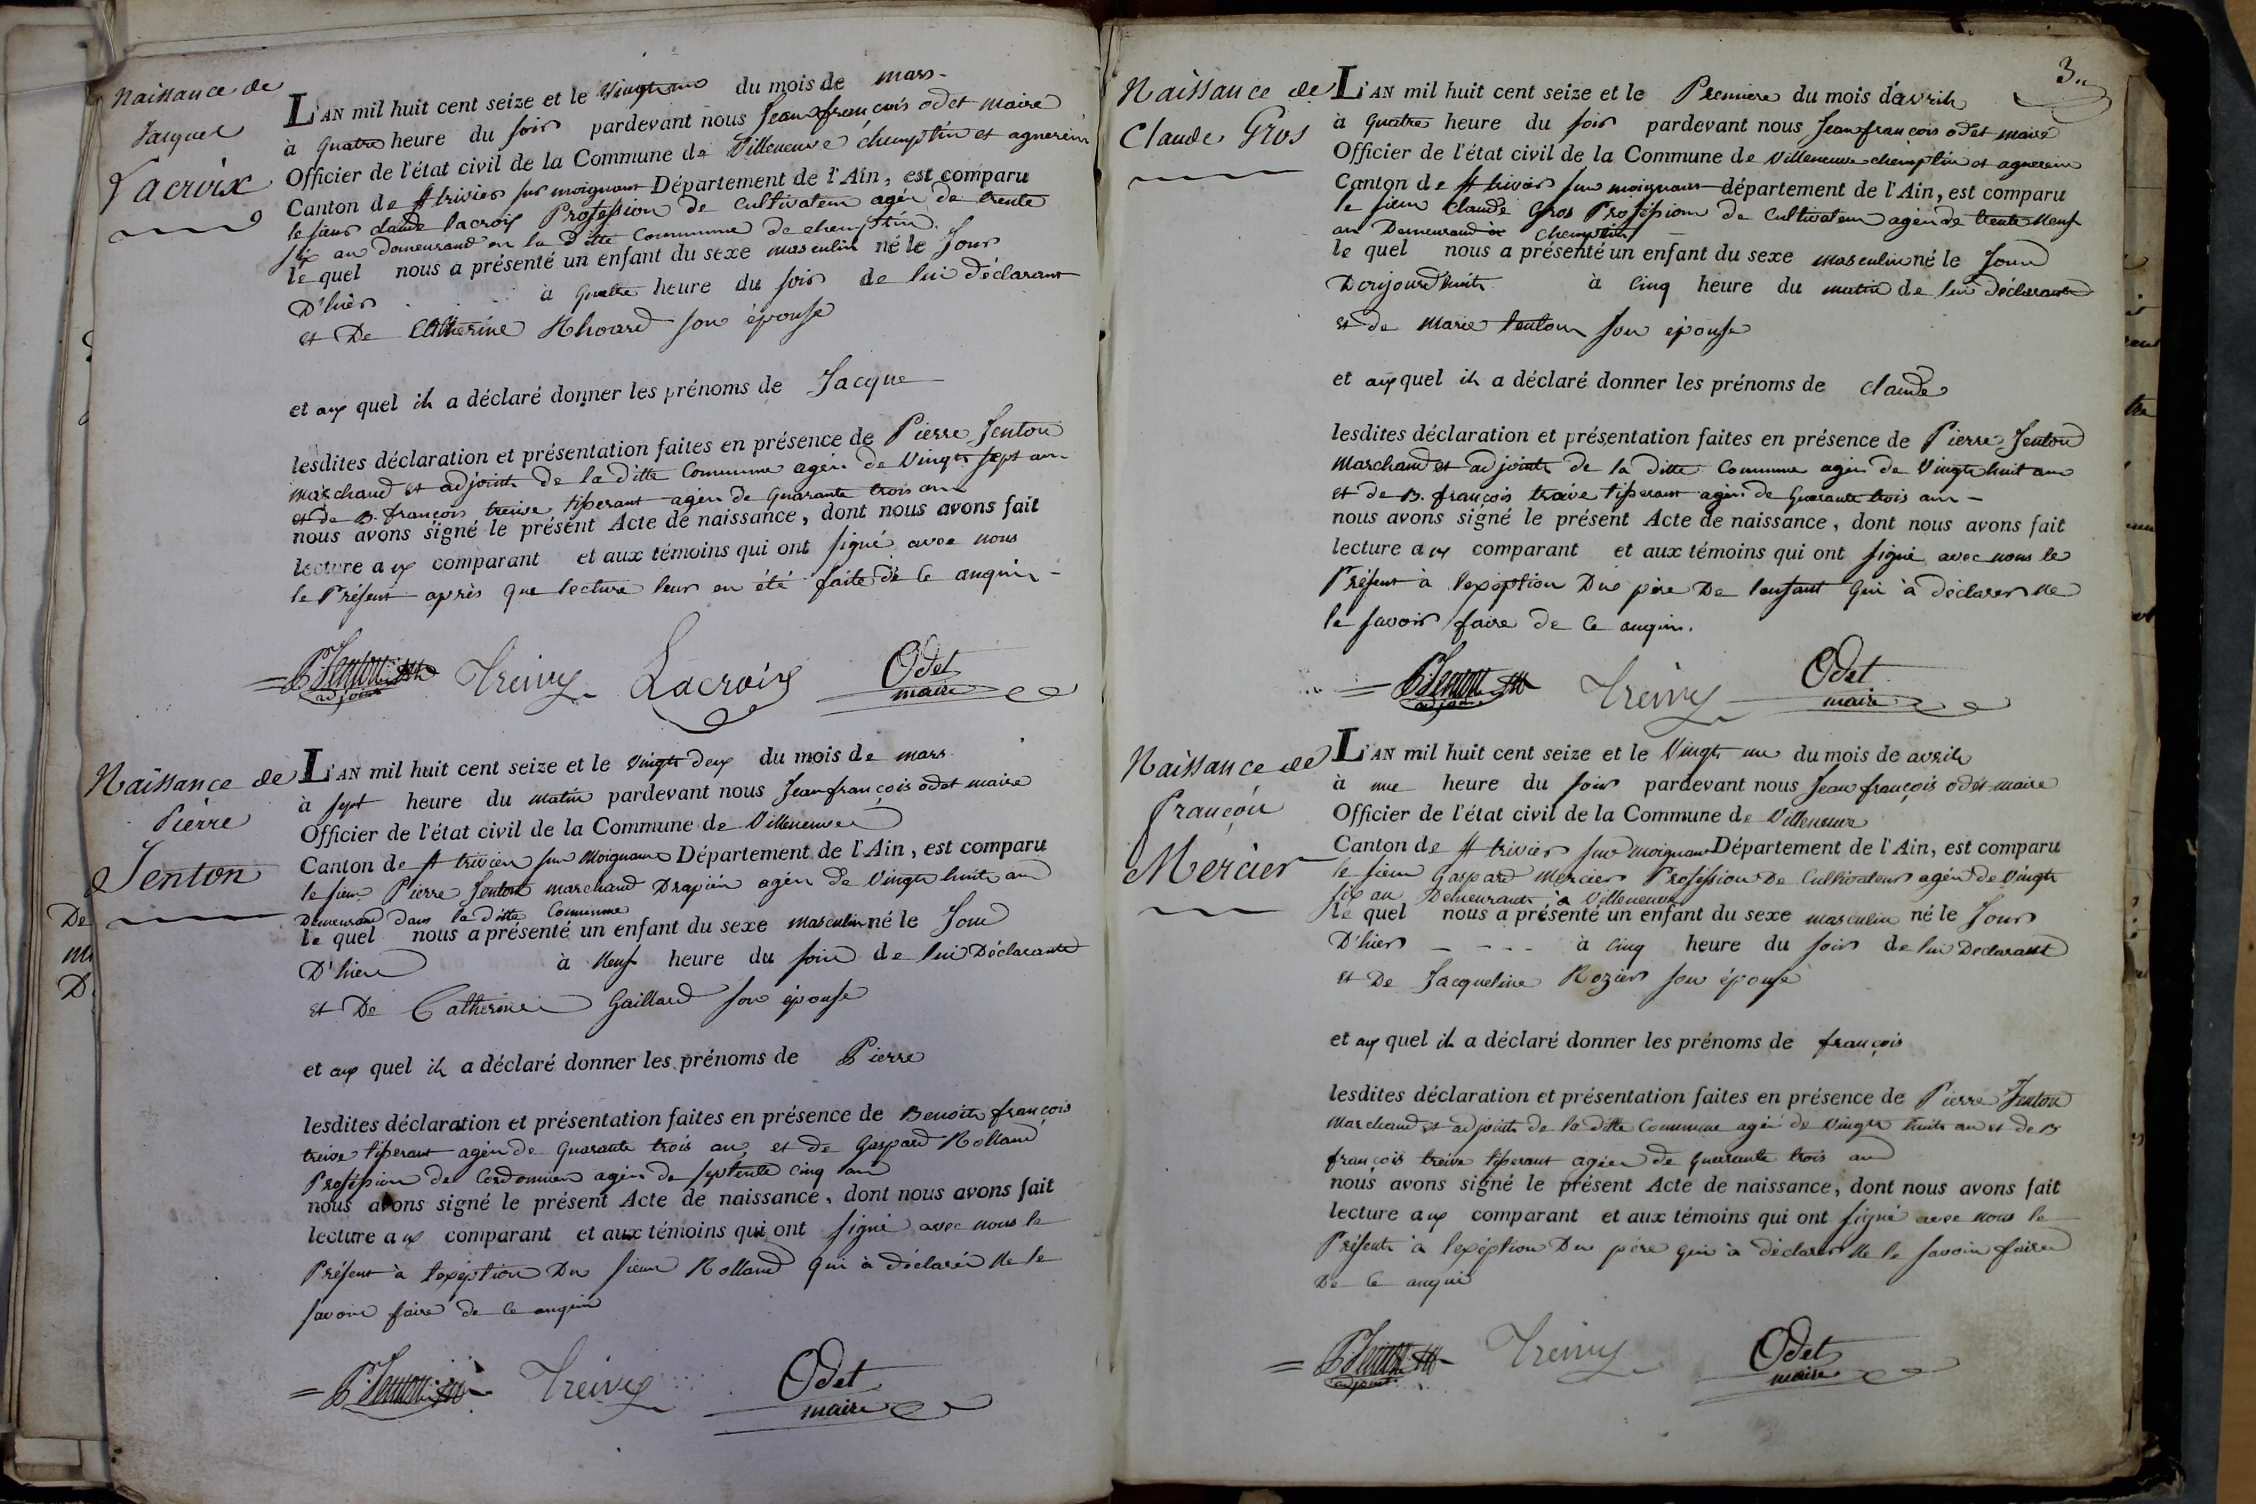 Naissance de
Jacques
Lacroix
L'AN mil huit cent seize et le Vingt un du mois de mars
à quatre heure du soir pardevant nous Jean françois odet maire
Officier de l'état civil de la Commune de Villeneuve chemptin et agnerein
Canton de St trivier sur moignans Département de l'Ain, est comparu
le sieur claude lacroix Profession de cultivateur agén de trente
six an demeurand en la ditte commune de chemptin
le quel nous a présenté un enfant du sexe masculin né le Jour
D'hièr à quatre heure du soir de lui déclarant
et De Catherine Rhoard son épouse
et au quel il a déclaré donner les prénoms de Jacque
lesdites déclaration et présentation faites en présence de Pierre Jenton
marchand et adjoint de la ditte Commune agén de Vingt sept an
et de B. françois treive tisserant agén de quarante trois an
nous avons signé le présent Acte de naissance, dont nous avons fait
lecture au comparant et aux témoins qui ont signé avec nous
le Présent après que lecture leur en été faite de ce anquir
P. Jenton adjoint Treive Lacroix Odet maire
Naissance de
Pièrre
Jenton
L'AN mil huit cent seize et le vingt deux du mois de mars
à sept heure du matin pardevant nous Jean françois odet maire
Officier de l'état civil de la Commune de Villeneuve
Canton de St trivier sur Moignans Département de l'Ain, est comparu
le sieur Pierre Jenton marchand Drapièr agén de Vingt huit an
Demeurand dans la ditte Commune
le quel nous a présenté un enfant du sexe masculin né le Jour
D'hier à Neuf heure du soir de lui Déclarant
et De Catherine Gaillard son épouse
et au quel il a déclaré donner les prénoms de Pierre
lesdites déclaration et présentation faites en présence de Benoit françois
treive tisserant agén de quarante trois an, et de Gaspard Rolland
Profession de Cordonnier agén de septente cinq an
nous avons signé le présent Acte de naissance, dont nous avons fait
lecture au comparant et aux témoins qui ont signé avec nous le
Présent à l'exéption Du sieur Rolland qui à déclaré ne le
savoir faire de ce anquir
P. Jenton Treive Odet maire
3
Naissance de
Claude Gros
L'AN mil huit cent seize et le Premiere du mois d'avril
à quatre heure du soir pardevant nous Jean françois odet maire
Officier de l'état civil de la Commune de Villeneuve chemptin et agnerein
Canton de St trivier sur moignans département de l'Ain, est comparu
le sieur Claude Gros Profession de Cultivateur agén de trente Neuf
an Demeurand à Chemptin
le quel nous a présenté un enfant du sexe masculin né le Jour
Donjourd'huit à cinq heure du matin de lui déclarant
et de Marie tenton son épouse
et au quel il a déclaré donner les prénoms de claude
lesdites déclaration et présentation faites en présence de Pierre Jenton
Marchand et adjoint de la ditte commune agén de Vingt huit an
et de B. françois treive tisserant agén de quarante trois an
nous avons signé le présent Acte de naissance, dont nous avons fait
lecture au comparant et aux témoins qui ont signé avec nous le
Présent à l'exéption Du père De l'enfant qui à déclarer ne
le savoir faire de ce anquir.
P. Jenton adjoint Treive Odet maire
Naissance de
françois
Mercier
L'AN mil huit cent seize et le Vingt un du mois de avril
à une heure du soir pardevant nous Jean françois odet maire
Officier de l'état civil de la Commune de Villeneuve
Canton de St trivier sur moignans Département de l'Ain, est comparu
le sieur Gaspard Mercier Profession De Cultivateur agén de vingt
six an Demeurant à Villeneuve
le quel nous a présenté un enfant du sexe masculin né le Jour
D'hier à cinq heure du soir de lui Déclarant
et De Jacqueline Rozier son épouse
et au quel il a déclaré donner les prénoms de françois
lesdites déclaration et présentation faites en présence de Pierre Jenton
Marchand et adjoint de la ditte Commune agén de Vingt huit an et de B
françois treive tisserant agén de quarante trois an
nous avons signé le présent Acte de naissance, dont nous avons fait
lecture au comparant et aux témoins qui ont signé avec nous le
Présent à l'exéption Du père qui à déclarer ne le savoir faire
De ce anquir
P. Jenton adjoint Treive Odet maire